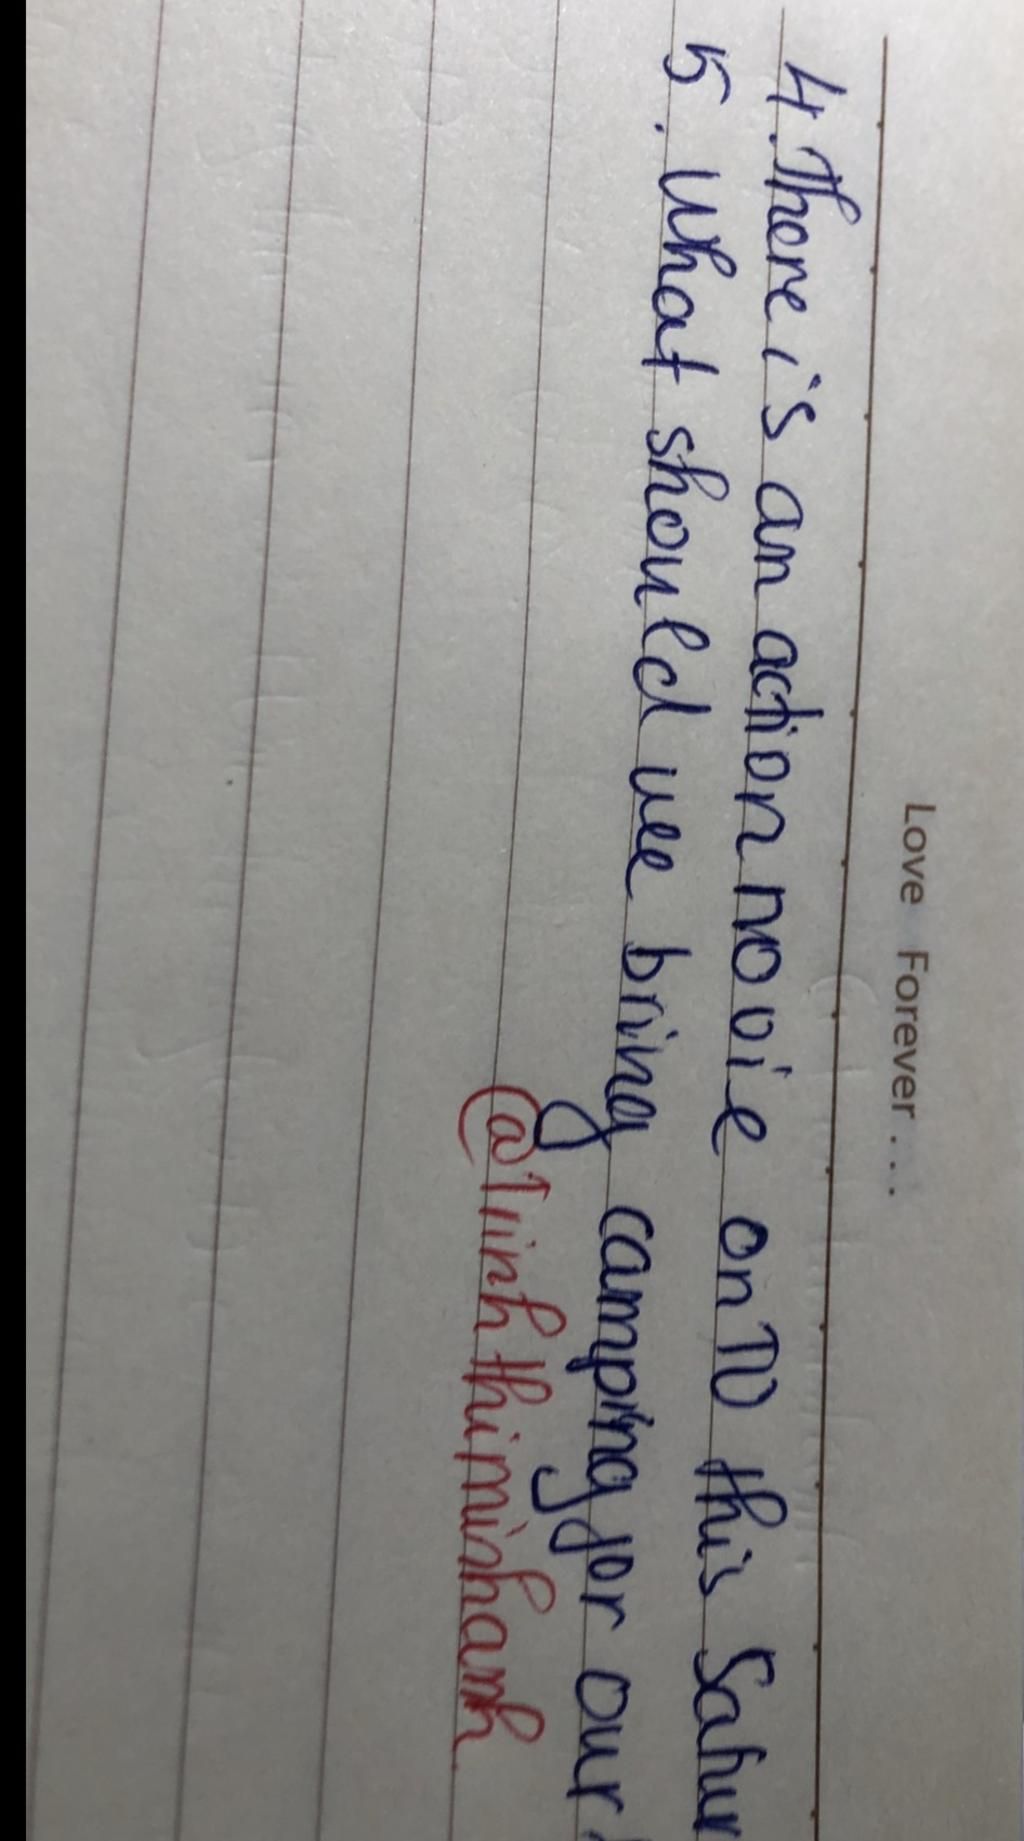 Love Forever...
4. There is an action movie on TV this Satur
5. What should we bring camping for our
@Trinh thi minh anh